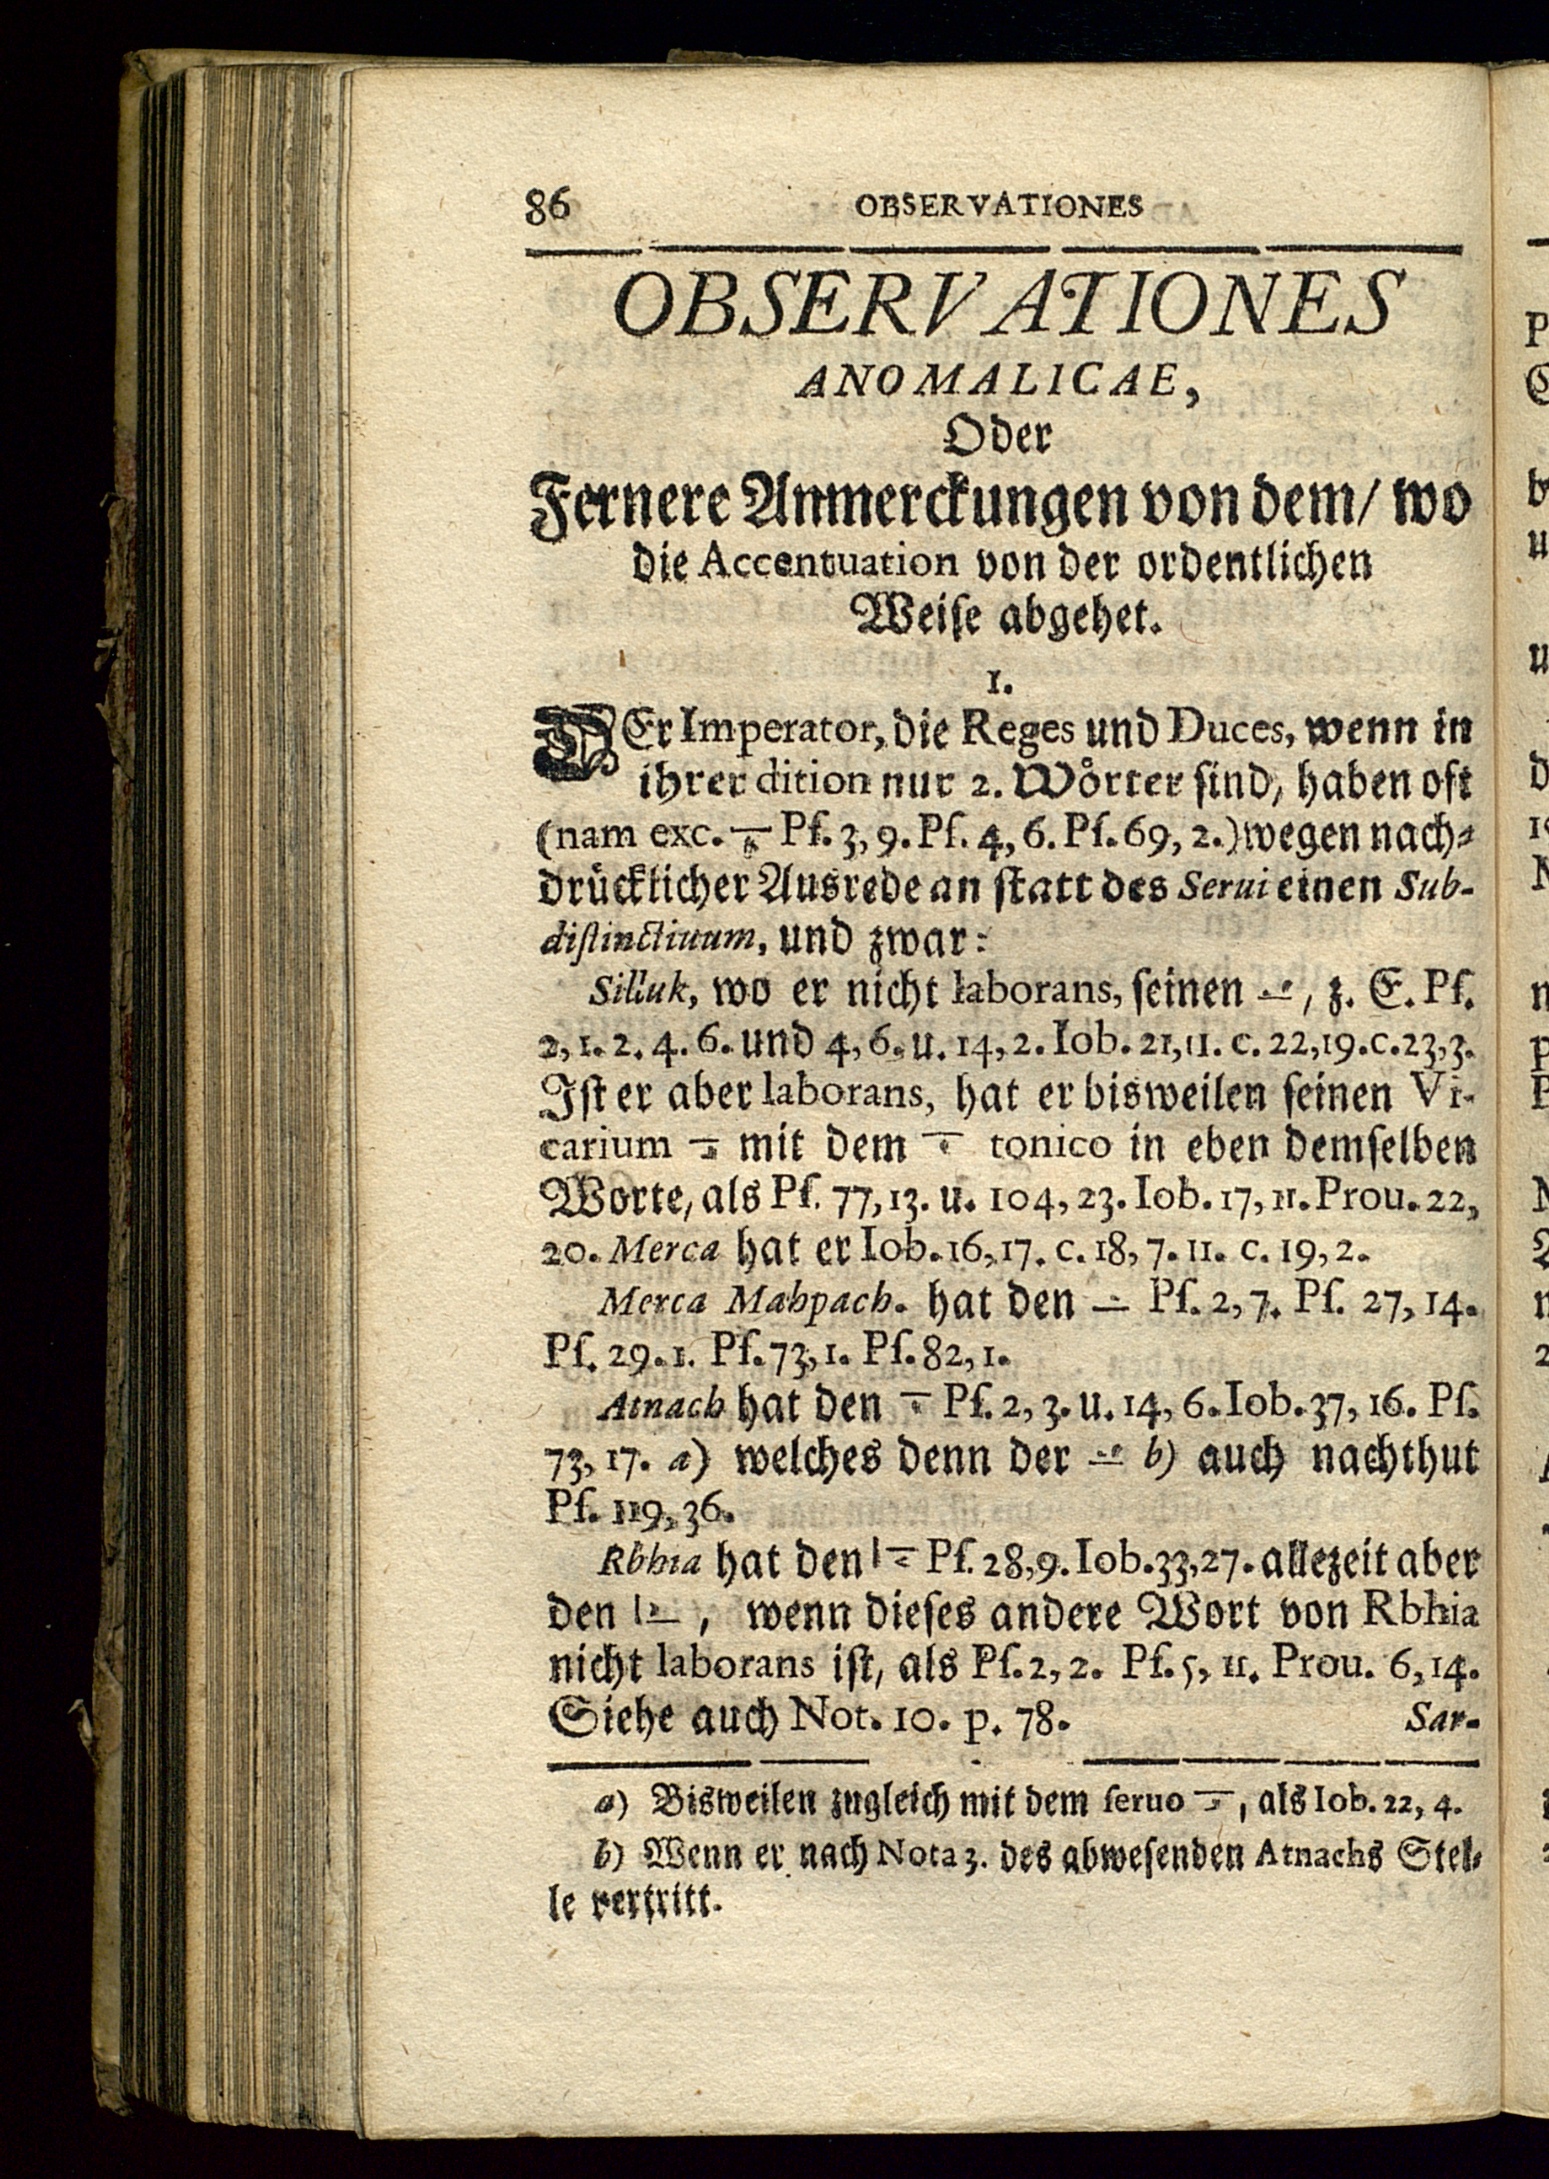 86 OBSERVATIONES
OBSERVATIONES
ANOMALICAE,
Oder
Fernere Anmerckungen von dem/ wo
die Accentuation von der ordentlichen
Weise abgehet.
1.
DEr Imperator, die Reges und Duces, wenn in
ihrer dition nur 2. Wörter sind, haben oft
(nam exc. Pſ. 3, 9. Pſ. 4, 6. Pſ. 69, 2.) wegen nach-
drücklicher Ausrede an statt des Serui einen Sub-
diſtinctiuum, und zwar:
Silluk, wo er nicht laborans, seinen , z. E. Pſ.
2, 1. 2. 4. 6. und 4, 6. u. 14, 2. Iob. 21, 11. c. 22, 19. c. 23, 3.
Ist er aber laborans, hat er bisweilen seinen Vi-
carium mit dem tonico in eben demselben
Worte, als Pſ. 77, 13. u. 104, 23. Iob. 17, 11. Prou. 22,
20. Merca hat er Iob. 16, 17. c. 18, 7. 11. c. 19, 2.
Merca Mahpach. hat den Pſ. 2, 7. Pſ. 27, 14.
Pſ. 29. 1. Pſ. 73, 1. Pſ. 82, 1.
Atnach hat den Pſ. 2, 3. u. 14, 6. Iob. 37, 16. Pſ.
73, 17. a) welches denn der b) auch nachthut
Pſ. 119, 36.
Rbhia hat den Pſ. 28, 9. Iob. 33, 27. allezeit aber
den , wenn dieses andere Wort von Rbhia
nicht laborans ist, als Pſ. 2, 2. Pſ. 5, 11. Prou. 6, 14.
Siehe auch Not. 10. p. 78. Sar-
a) Bisweilen zugleich mit dem ſeruo , als Iob. 22, 4.
b) Wenn er nach Nota 3. des abwesenden Atnachs Stel-
le vertritt.